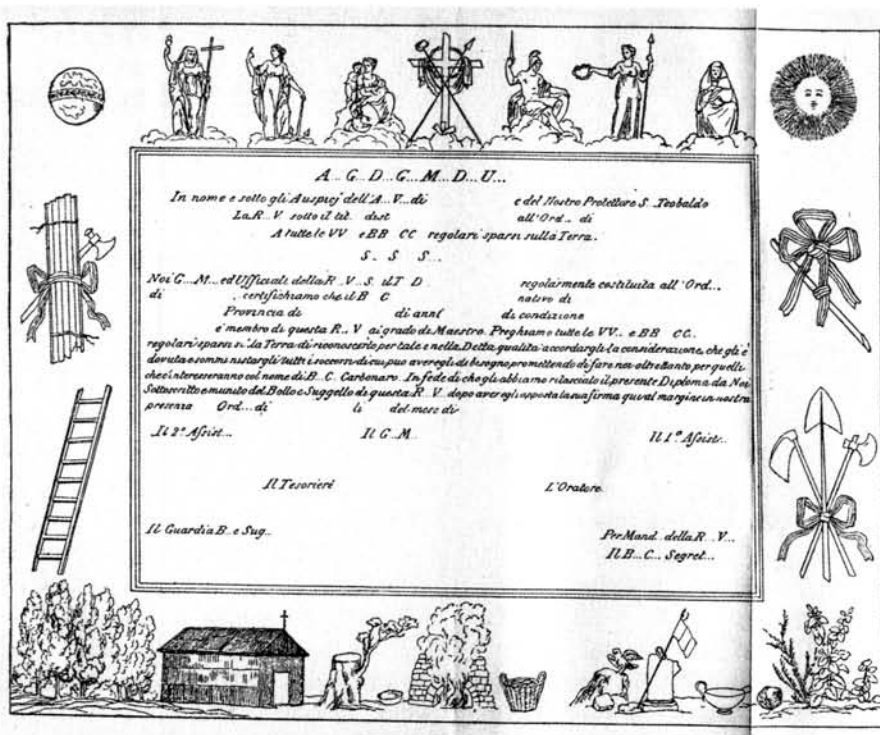 A... G... D... G... M... D... U...
In nome e sotto gli Auspicj dell'A... V... di e del Nostro Protettore S. Teobaldo
La R... V. sotto il tit. dist all'Ord... di
A tutte le VV e BB CC regolari sparsi sulla Terra.
S... S... S...
Noi G... M... ed Ufficiali della R... V... S. il T D regolarmente costituita all'Ord...
di certifichiamo che il B C nativo di
Provincia di di anni di condizione
e' membro di questa R... V al grado di Maestro. Preghiamo tutte le VV... e BB CC..
regolari sparsi su la Terra di riconoscerlo per tale e nella Detta qualita accordargli la considerazione, che gli è
dovuta e somministargli tutti i soccorsi di cui puo avere gli di bisogno promettendo di fare noi altrettanto per quelli
che c'interesseranno col nome di B... C. Carbonaro. In fede di che gli abbiamo rilasciato il presente Diploma da Noi
Sottoscritto e munito del Bollo e Suggello di questa R... V dopo avere gli apposta la sua firma qui al margine in nostra
presenza Ord... di li del mese di
Il 2º Assist... Il G... M. Il 1º Assist..
Il Tesorieri L'Oratore
Il Guardia B... e Sug... Per Mand. della R... V...
Il B... C... Segret...